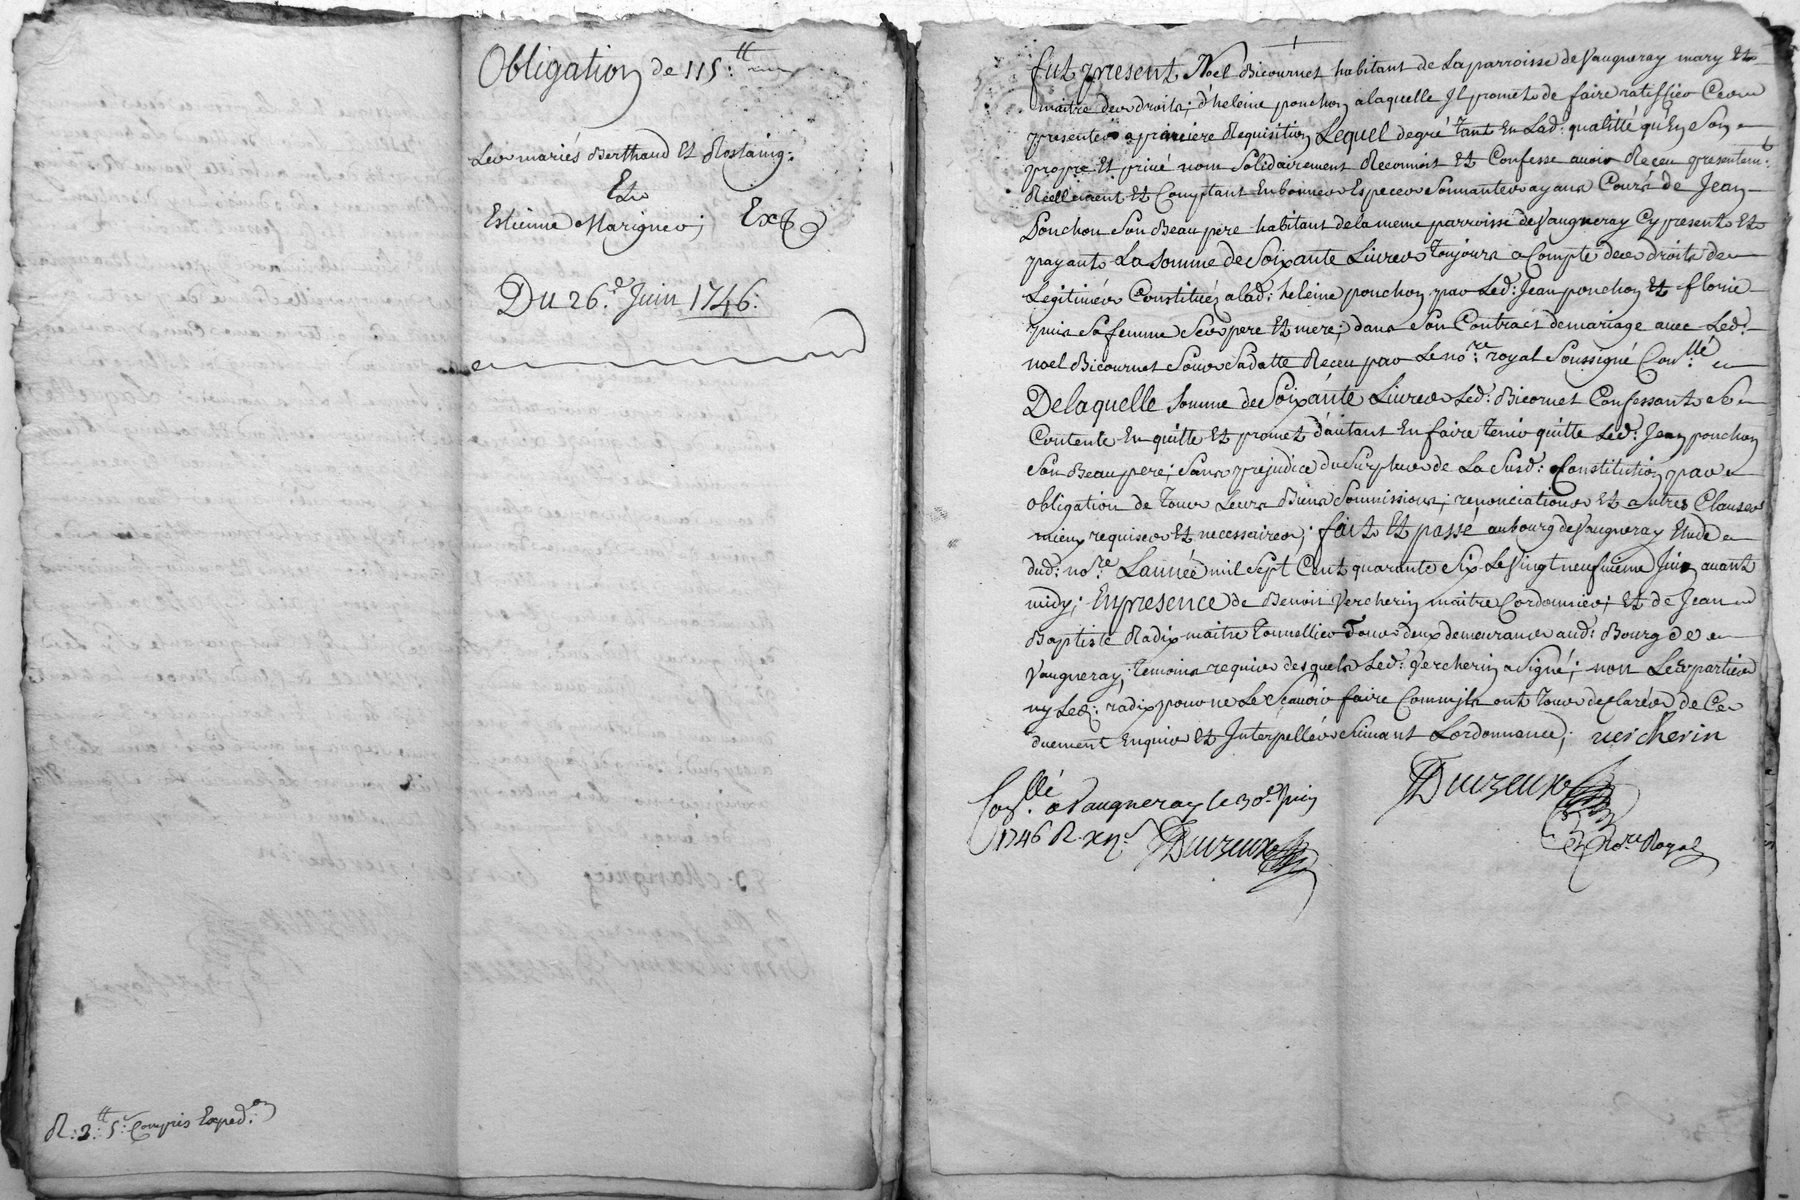 Obligation de 115.ᵗᵗ
Les mariés Berthaud Et Rostaing.
Et
Estienne Marignes; Exp
Du 26.ᵉ Juin 1746.
R: 3:ᵗᵗ 5:ˢ Compris Exped.ᵒⁿ
fut present Noel Bicournet habitant de La parroisse de Vaugneray mary Et
maitre des droits; d'heleine ponchon a laquelle Jl promet de faire ratiffier Ces
presentes a premiere Requisition Lequel degré tant En Lad: qualitté qu'En Son
propre Et privé nom Solidairement Reconnoit Et Confesse avoir Receu presentem:ᵗ
Réellement Et Comptant En bonnes Especes Sonnantes ayans Cours de Jean
Ponchon Son Beau pere habitant de la meme parroisse de Vaugneray Cy present Et
payant La somme de Soixante Livres toujours a Compte des droits
Legitimes Constitués a lad: heleine ponchon par Led: Jean ponchon Et florie
puis Sa femme Ses pere Et mere; dans Son Contract de mariage avec Led:
noel Bicournet Sous Sa datte Receu par Le no:ʳᵉ royal Soussigné Con.ˡˡᵉ
De laquelle Somme de Soixante Livres Led: Bicornet Confessant Se
Contente En quitte Et promet d'autant En faire tenir quitte Led: Jean ponchon
Son Beau pere; Sans prejudice du Surplus de La Susd: Constitution par
obligation de tous Leurs Biens Soumissions; renonciations Et autres Clauses
mieux requises Et necessaires; fait Et passé au bourg de Vaugneray Etude
dud: no:ʳᵉ L'année mil Sept Cent quarante Six Le Vingt neufvieme Juin avant
midy; En presence de Benoit Vercherin maitre Cordonnier; Et de Jean
Baptiste Radix maitre tonnellier tous deux demeurans aud: Bourg de
Vaugneray; temoins requis desquels Led: Vercherin a Signé; non Les parties
ny Led: radix pour ne Le Scavoir faire Comm'jls ont tous declarés de Ce
duement Enquis Et Interpellés Suivant L'ordonnance; vercherin
Con.ˡˡᵉ a Vaugneray le 30.ᵉ Juin
1746 R.
no.ʳᵉ Royal